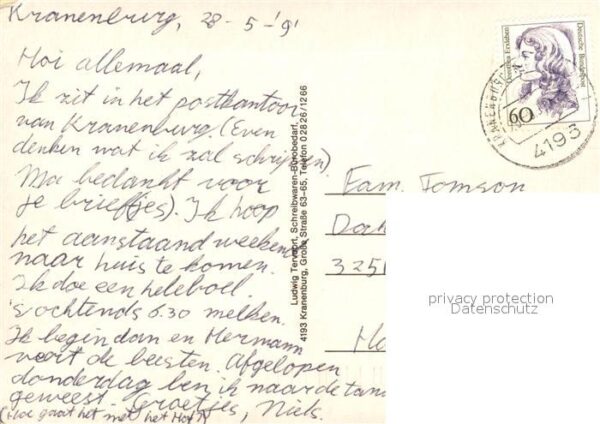 Kranenburg, 28-5-'91
Hoi allemaal,
Ik zit in het postkantoor
van Kranenburg. (Even
denken wat ik zal schrijven)
Ma bedankt voor
je briefjes). Ik hoop
het aanstaand weekend
naar huis te komen.
Ik doe een heleboel.
's ochtends 6.30 melken.
Ik begin dan en Hermann
voert de beesten. Afgelopen
donderdag ben ik naar de tan
geweest. Groetjes, Niels.
(Hoe gaat het met het Hof?)
Ludwig Tervoort, Schreibwaren-Bürobedarf,
4193 Kranenburg, Große Straße 63-65, Telefon 02826/1266
Dorothea Erxleben
Deutsche Bundespost
60
KRANENBURG
4193
Fam. Tomson
325
privacy protection
Datenschutz